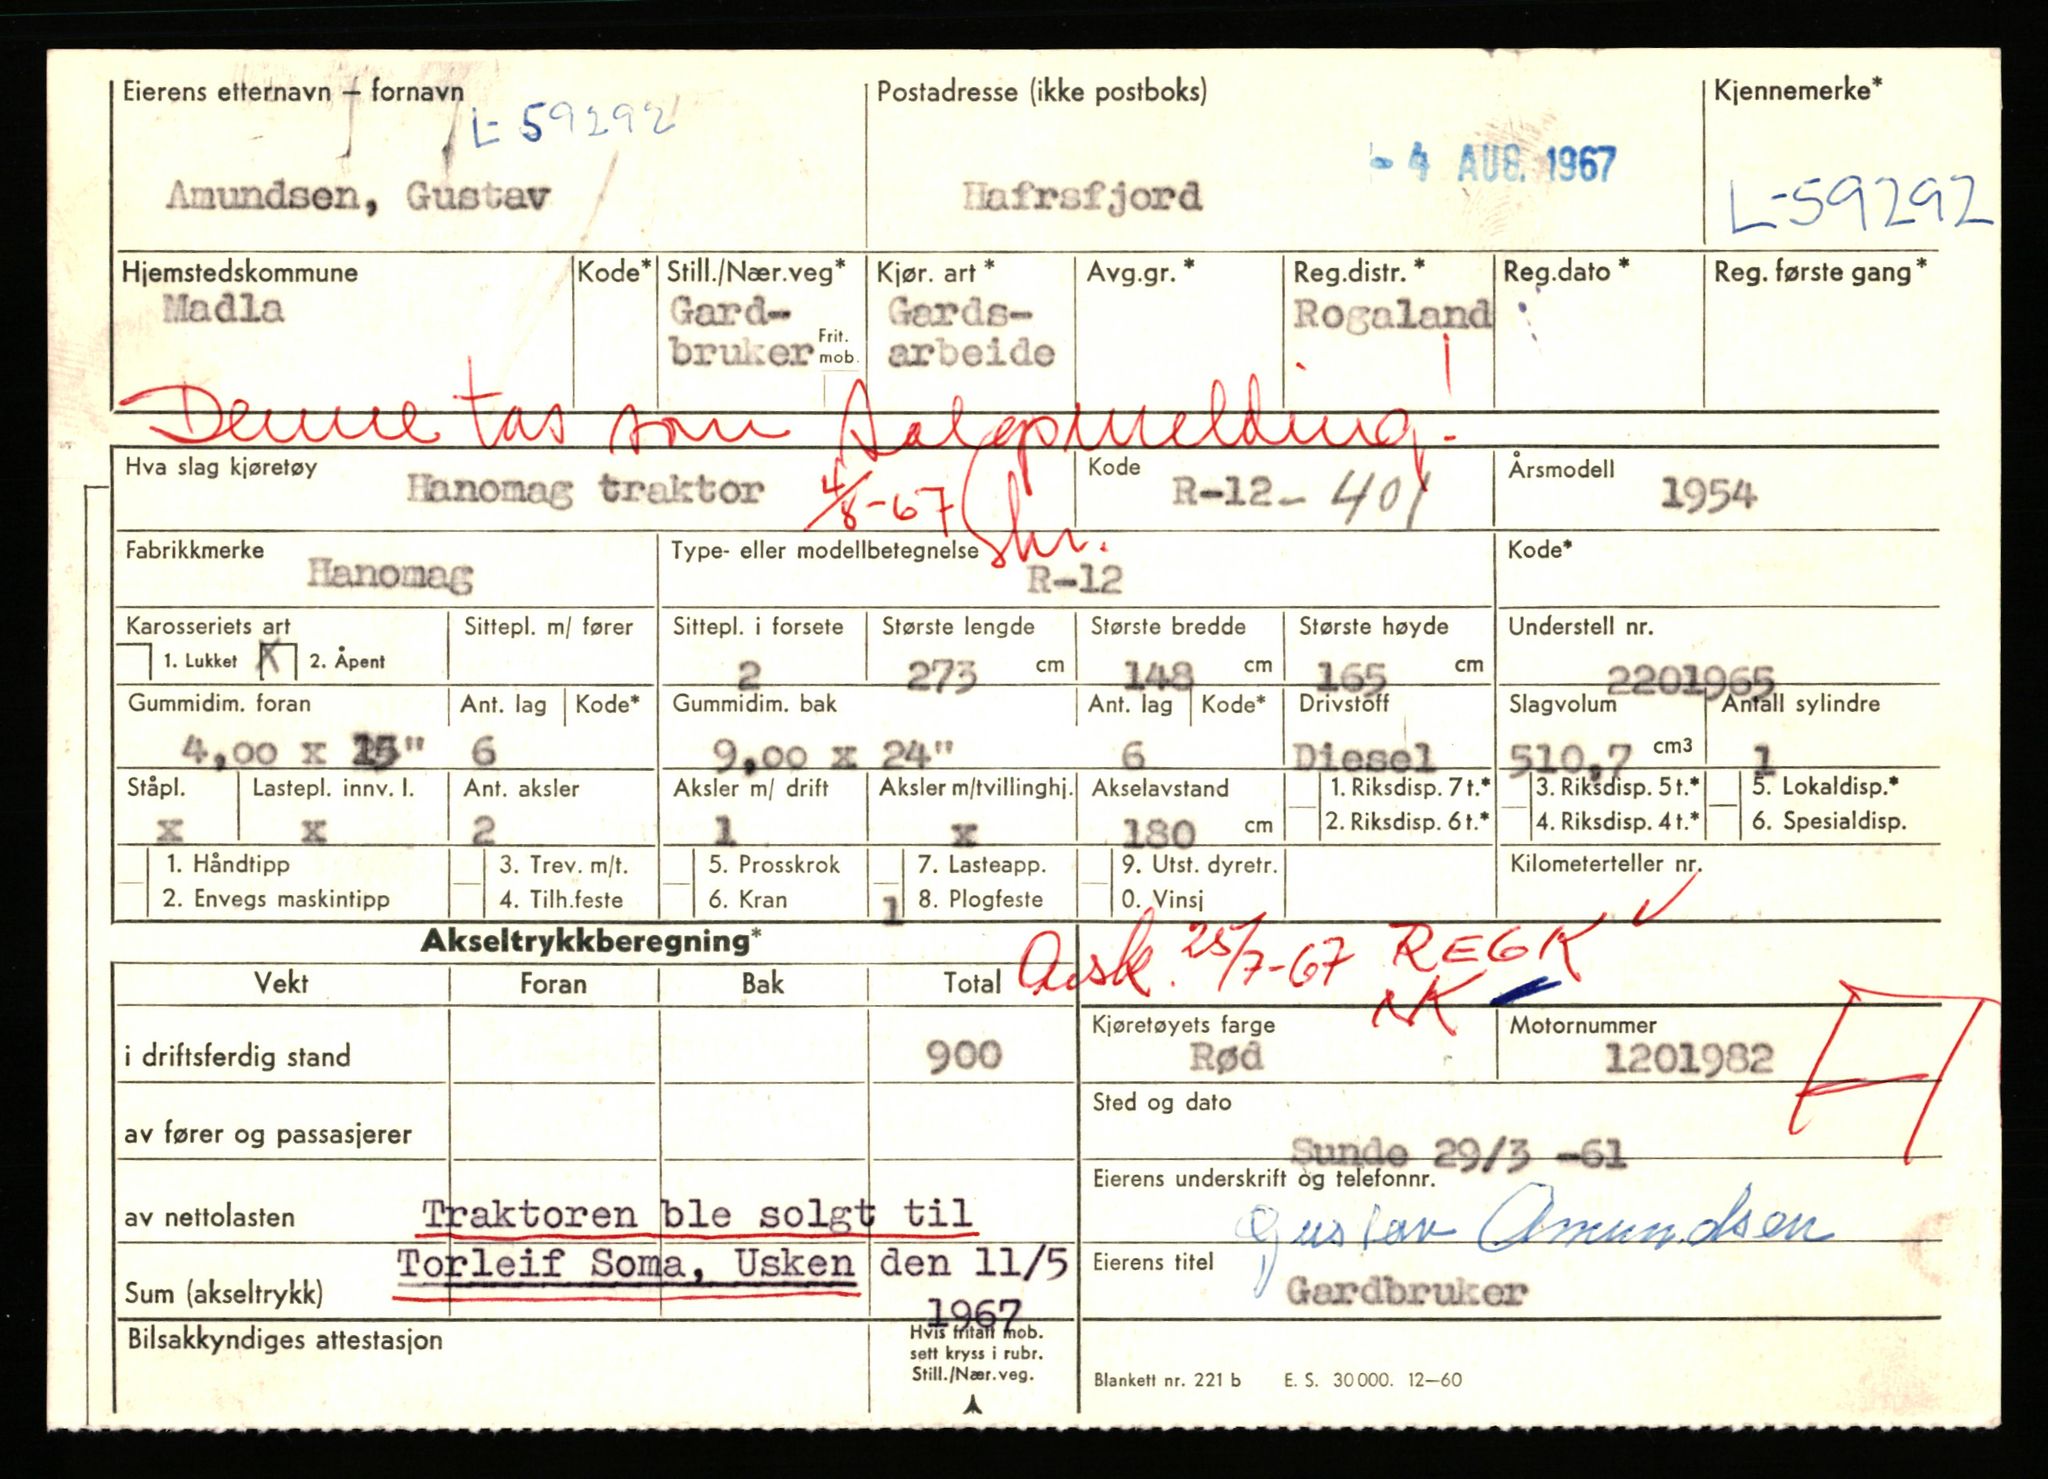 Eierens etternavn – fornavn
L-59292
Amundsen, Gustav
Postadresse (ikke postboks)
Hafrsfjord
- 4 AUG. 1967
Kjennemerke*
L-59292
Hjemstedskommune
Madla
Kode*
Still./Nær.veg*
Gard-
bruker
Frit.
mob.
Kjør. art *
Gards-
arbeide
Avg.gr. *
Reg.distr. *
Rogaland
Reg.dato *
Reg. første gang*
Denne tas som Salgsmelding!
4/8-67
Hva slag kjøretøy
Hanomag traktor
Kode
R-12 - 401
Årsmodell
1954
Fabrikkmerke
Hanomag
Type- eller modellbetegnelse
R-12
Kode*
Karosseriets art
1. Lukket X 2. Åpent
Sittepl. m/ fører
Sittepl. i forsete
2
Største lengde
273 cm
Største bredde
148 cm
Største høyde
165 cm
Understell nr.
2201965
Gummidim. foran
4,00 x 15"
Ant. lag
6
Kode*
Gummidim. bak
9,00 x 24"
Ant. lag
6
Kode*
Drivstoff
Diesel
Slagvolum
510,7 cm3
Antall sylindre
1
Ståpl.
x
Lastepl. innv. l.
x
Ant. aksler
2
Aksler m/ drift
1
Aksler m/tvillinghj.
x
Akselavstand
180 cm
1. Riksdisp. 7 t.*
2. Riksdisp. 6 t.*
3. Riksdisp. 5 t.*
4. Riksdisp. 4 t.*
5. Lokaldisp.*
6. Spesialdisp.
1. Håndtipp
2. Envegs maskintipp
3. Trev. m/t.
4. Tilh.feste
5. Prosskrok
6. Kran
7. Lasteapp.
1 8. Plogfeste
9. Utst. dyretr.
0. Vinsj
Kilometerteller nr.
Akseltrykkberegning*
Avsk. 25/7-67 REGK
NK
Vekt
Foran
Bak
Total
i driftsferdig stand
900
Kjøretøyets farge
Rød
Motornummer
1201982
av fører og passasjerer
Sted og dato
Sunde 29/3 -61
av nettolasten
Traktoren ble solgt til
Eierens underskrift og telefonnr.
Gustav Amundsen
Sum (akseltrykk)
Torleif Soma, Usken den 11/5
1967
Eierens titel
Gardbruker
Bilsakkyndiges attestasjon
Hvis fritatt mob.
sett kryss i rubr.
Still./Nær.veg.
Blankett nr. 221 b E. S. 30 000. 12–60